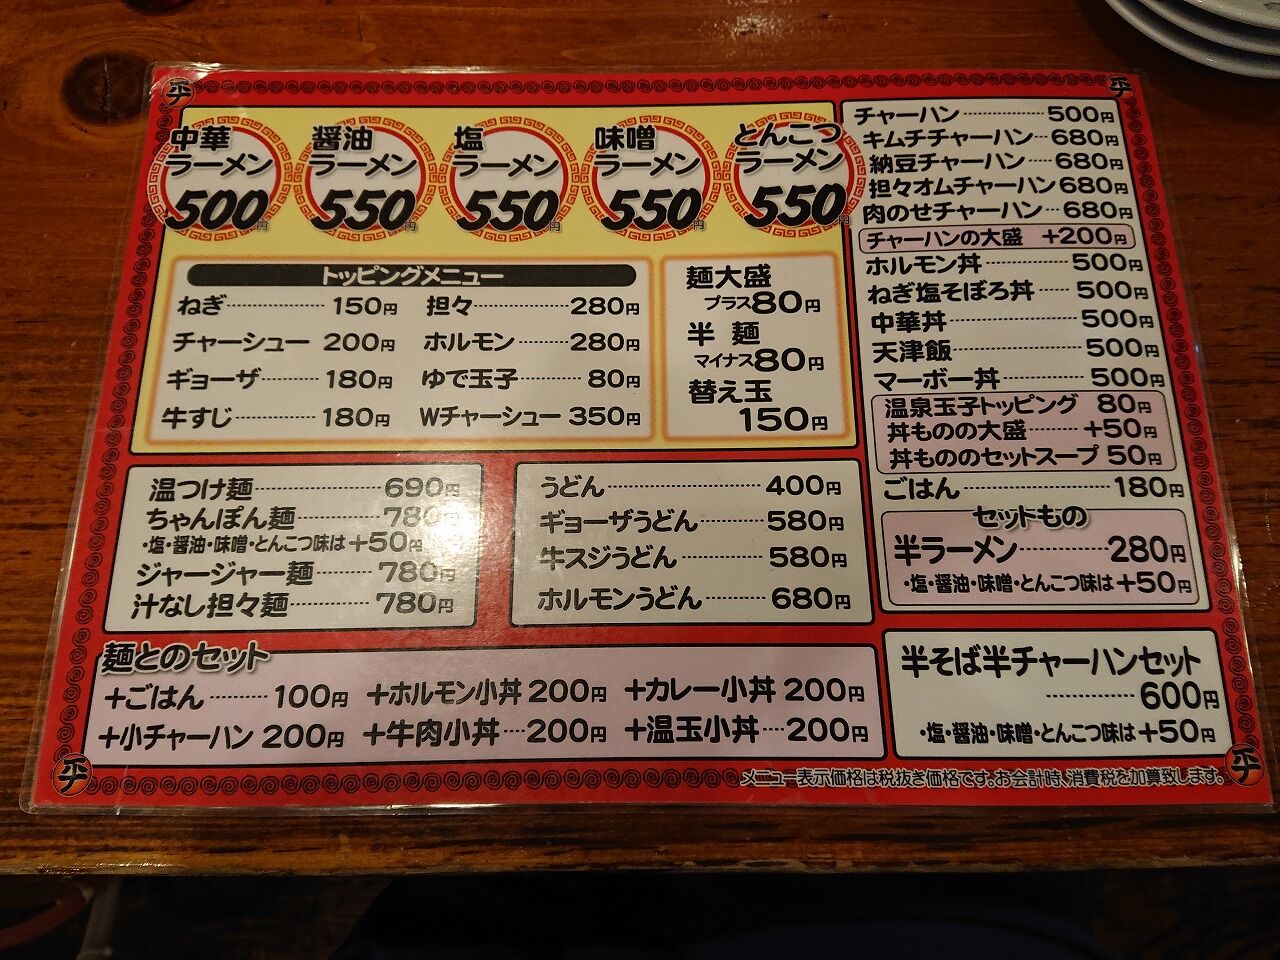 中華
ラーメン
500円
醤油
ラーメン
550円
塩
ラーメン
550円
味噌
ラーメン
550円
とんこつ
ラーメン
550円
トッピングメニュー
ねぎ 150円
チャーシュー 200円
ギョーザ 180円
牛すじ 180円
担々 280円
ホルモン 280円
ゆで玉子 80円
Wチャーシュー 350円
麺大盛
プラス80円
半麺
マイナス80円
替え玉
150円
チャーハン 500円
キムチチャーハン 680円
納豆チャーハン 680円
担々オムチャーハン 680円
肉のせチャーハン 680円
チャーハンの大盛 +200円
ホルモン丼 500円
ねぎ塩そぼろ丼 500円
中華丼 500円
天津飯 500円
マーボー丼 500円
温泉玉子トッピング 80円
丼ものの大盛 +50円
丼もののセットスープ 50円
ごはん 180円
セットもの
半ラーメン 280円
・塩・醤油・味噌・とんこつ味は+50円
温つけ麺 690円
ちゃんぽん麺 780円
・塩・醤油・味噌・とんこつ味は+50円
ジャージャー麺 780円
汁なし担々麺 780円
うどん 400円
ギョーザうどん 580円
牛スジうどん 580円
ホルモンうどん 680円
麺とのセット
+ごはん 100円 +ホルモン小丼 200円 +カレー小丼 200円
+小チャーハン 200円 +牛肉小丼 200円 +温玉小丼 200円
半そば半チャーハンセット
600円
・塩・醤油・味噌・とんこつ味は+50円
メニュー表示価格は税抜き価格です。お会計時、消費税を加算致します。